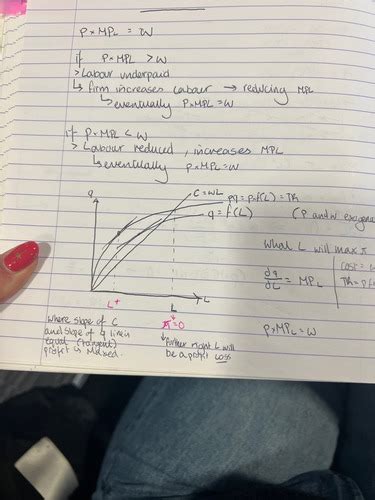 P × MPL = W
if P × MPL > W
> Labour underpaid
↳ firm increases labour → reducing MPL
↳ eventually P×MPL = W
if P × MPL < W
> Labour reduced, increases MPL
↳ eventually P×MPL = W
q
C = WL
pq = p.f(L) = TR
q = f(L)
(P and W exogen
L*
L
L
What L will max π
dq/dL = MPL
cost =
TR = p f(
P×MPL = W
π = 0
where slope of C
and slope of q line is
equal (tangent)
profit is maxed.
↳ further right L will
be a profit loss